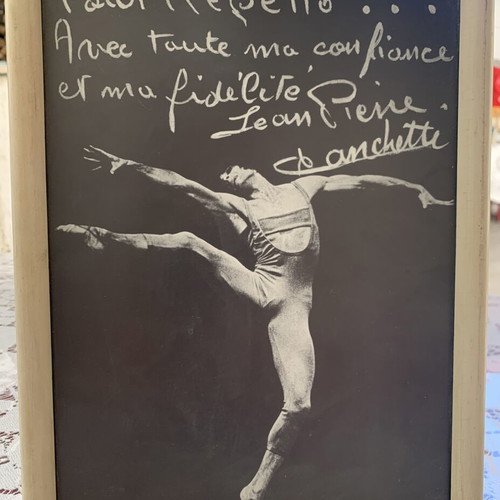 Pour Repetto . . .
Avec toute ma confiance
et ma fidélité,
Jean Pierre.
Franchetti